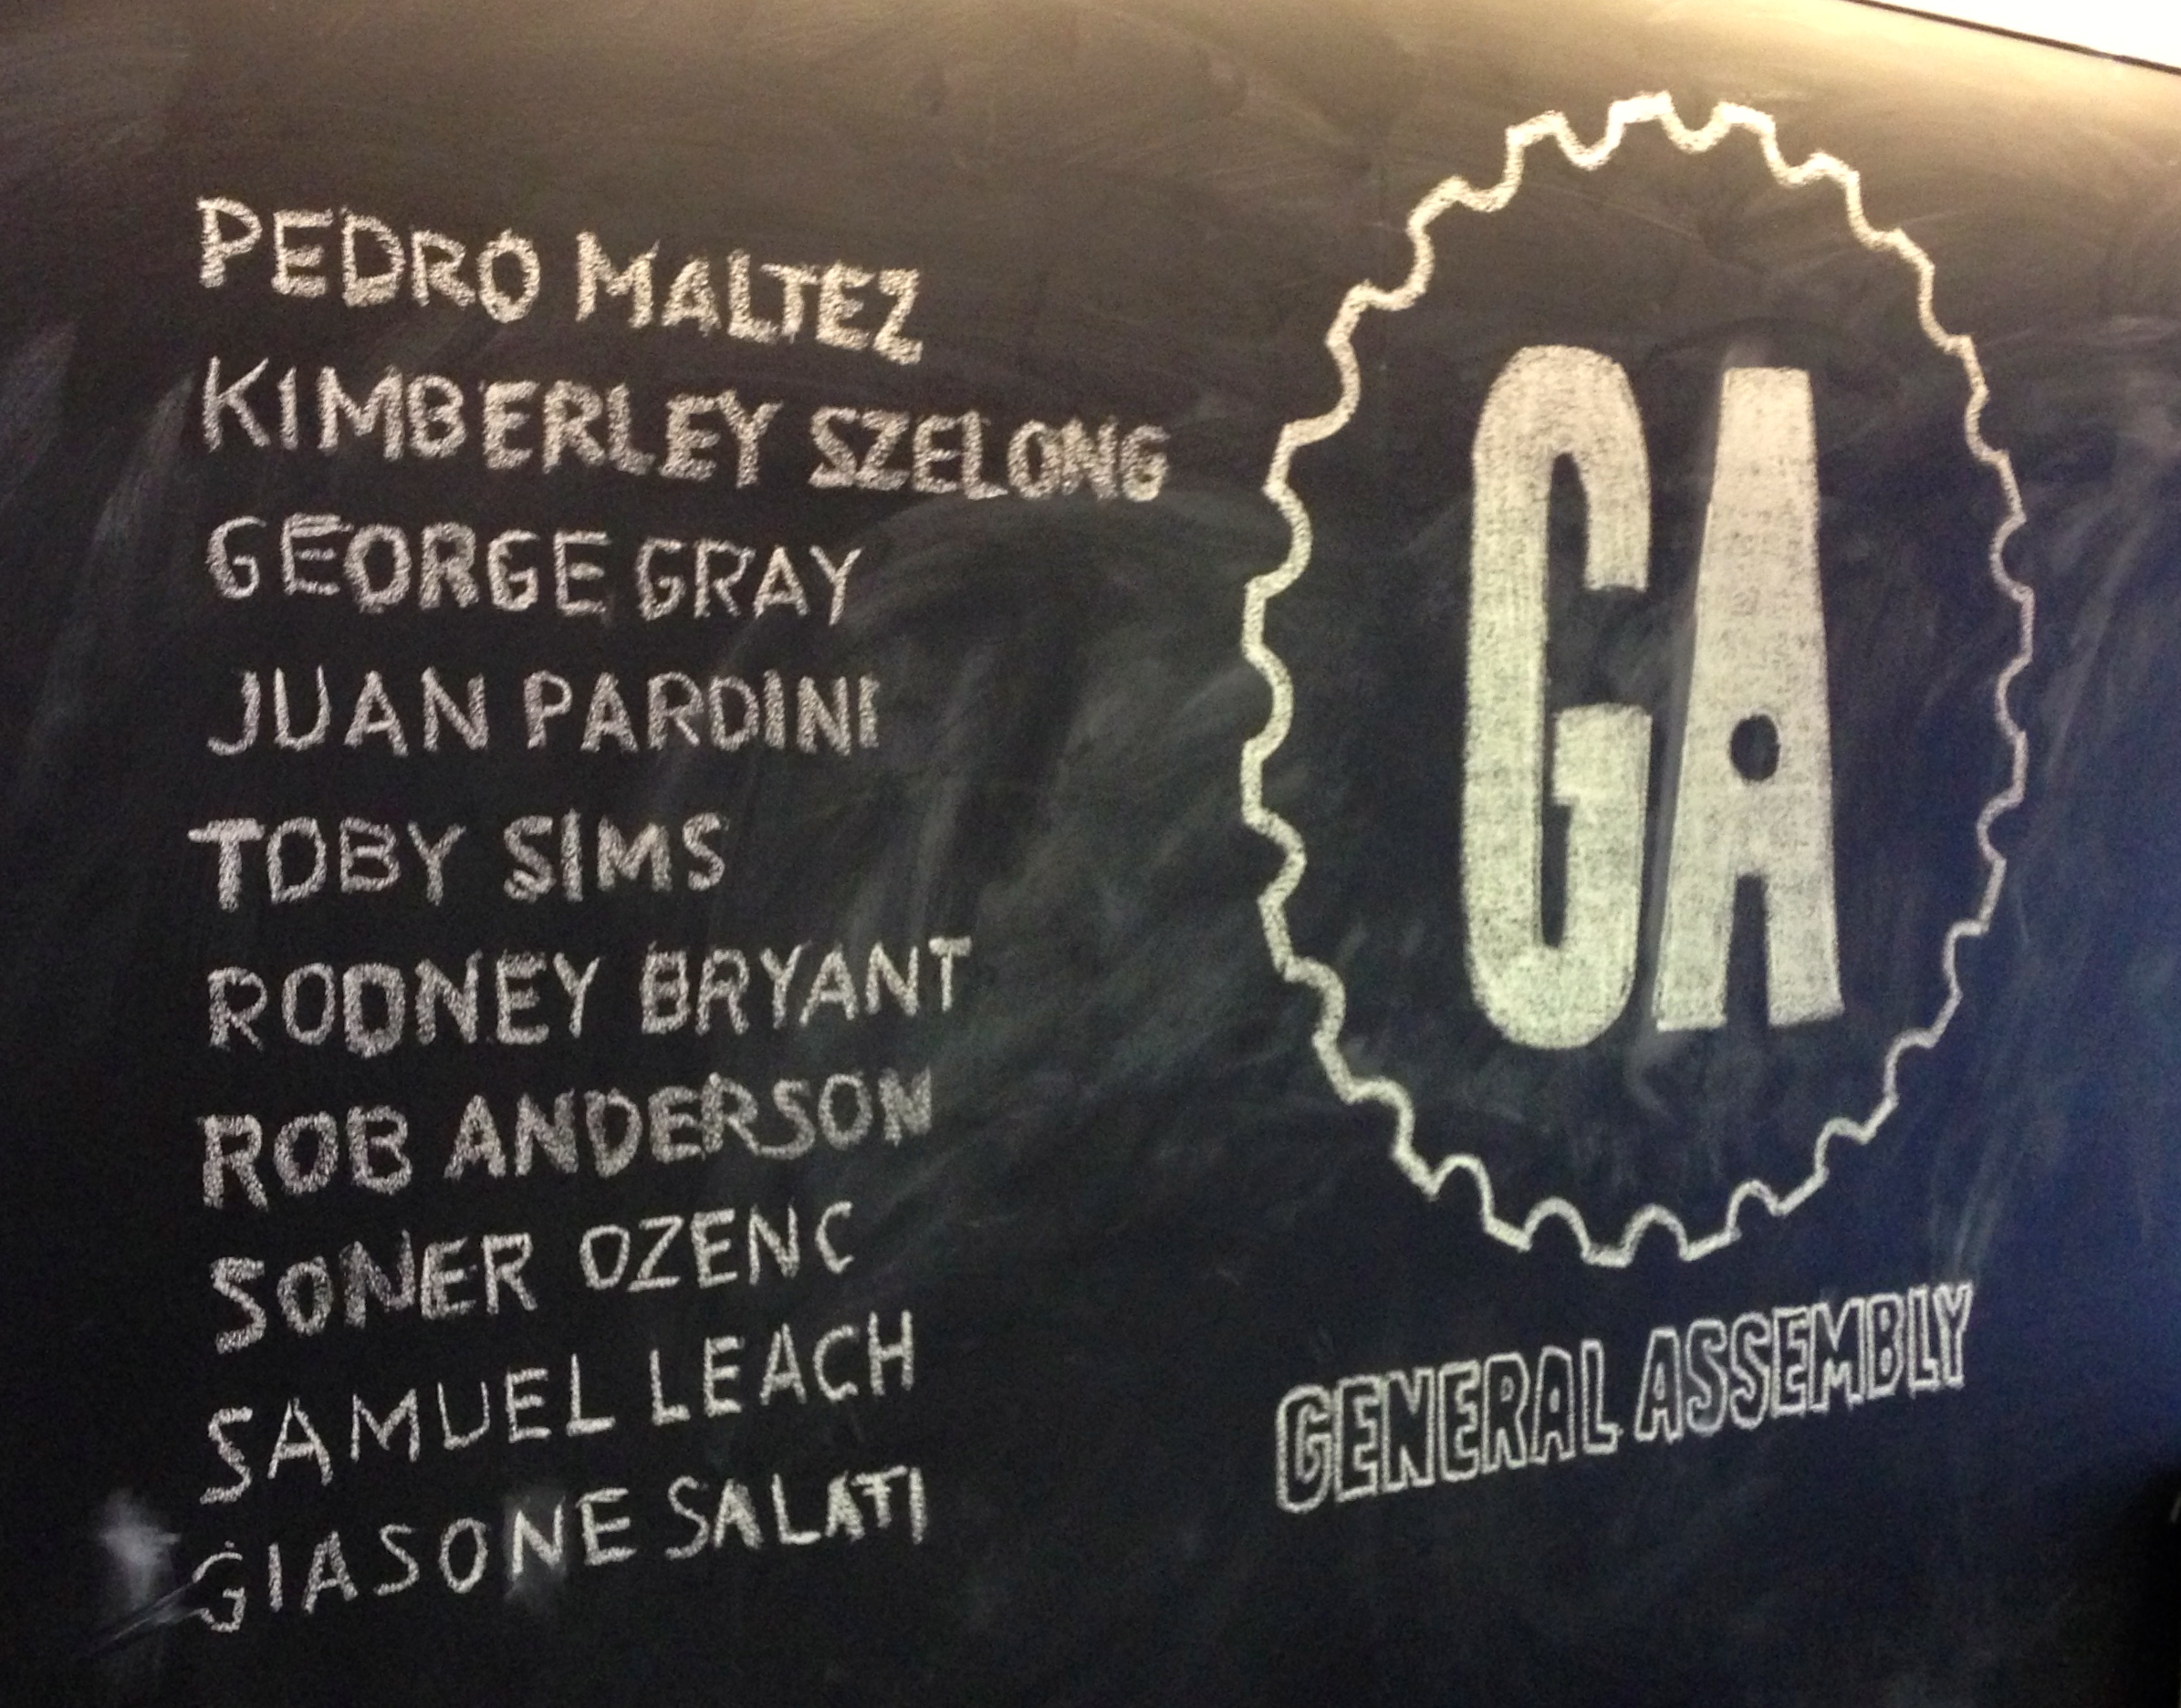 PEDRO MALTEZ
KIMBERLEY SZELONG
GEORGE GRAY
JUAN PARDINI
TOBY SIMS
RODNEY BRYANT
ROB ANDERSON
SONER OZENC
SAMUEL LEACH
GIASONE SALATI
GA
GENERAL ASSEMBLY